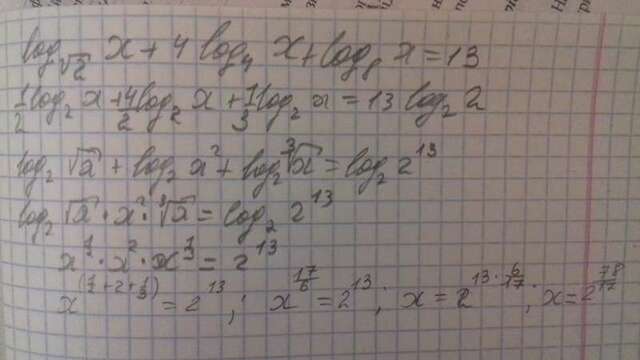 log_√2 x + 4 log_4 x + log_8 x = 13
1/2 log_2 x + 4/2 log_2 x + 1/3 log_2 x = 13 log_2 2
log_2 √x + log_2 x^2 + log_2 ∛x = log_2 2^13
log_2 √x · x^2 · ∛x = log_2 2^13
x^(1/2) · x^2 · x^(1/3) = 2^13
x^(1/2 + 2 + 1/3) = 2^13 ; x^(17/6) = 2^13 ; x = 2^(13 · 6/17) ; x = 2^(78/17)